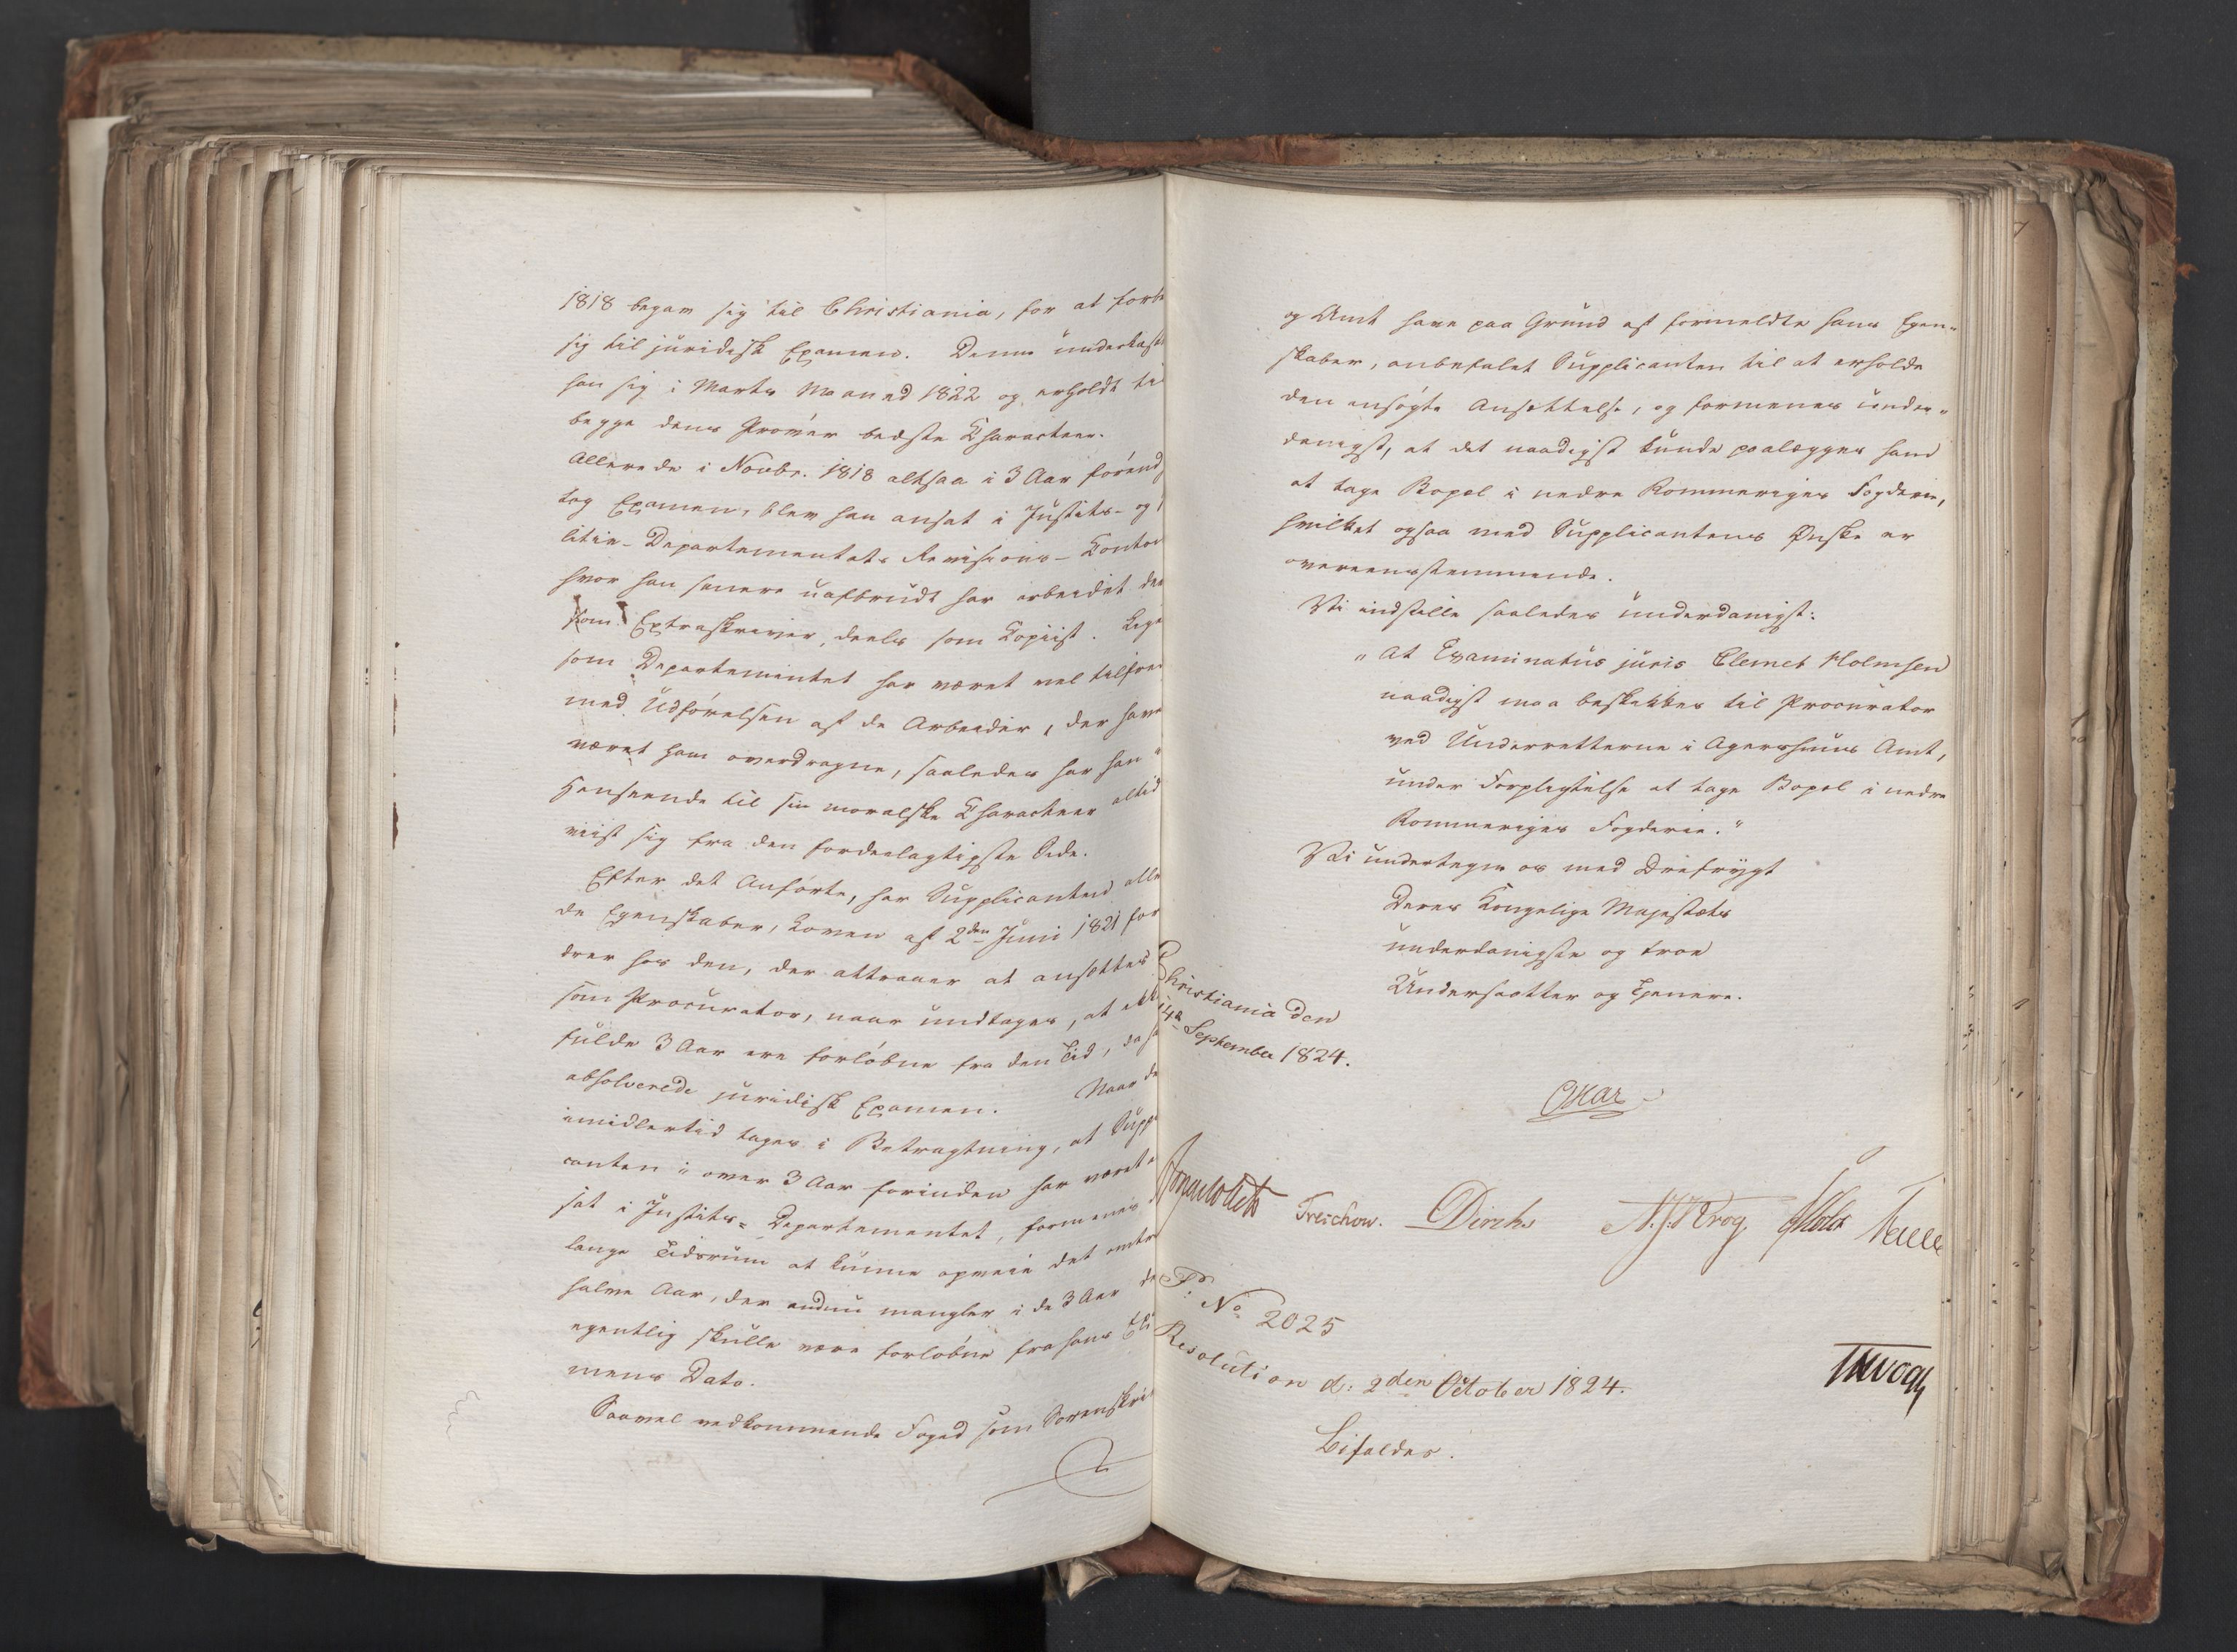 1818 begav sig til Christiania, for at forbe
sig til juridisk Examen. Denne underkaste
han sig i Marts Maaned 1822 og erholdt til
begge dens Prøver bedste Charakteer.
Allerede i Novbr. 1818 altsaa i 3 Aar førend
tog Examen, blev han ansat i Justits- og
litie-Departementets Revisions-Contoir
hvor han senere uafbrudt har arbeidet dee
som Extraskriver, deels som Copiist. Lige
som Departementet har været vel tilfred
med Udførelsen af de Arbeider, der have
været ham overdragne, saaledes har han i
Henseende til sin moralske Charakteer altid
viist sig fra den fordeelagtigste Side.
Efter det Anførte, har Supplicanten alle
de Egenskaber, Loven af 2den Juni 1821 for
drer hos den, der attraaer at ansættes
som Procurator, naar undtages, at ikke
fulde 3 Aar ere forløbne fra den Tid, da ha
absolverede juridisk Examen. Naar de
imidlertid tages i Betragtning, at Suppli
canten i over 3 Aar forinden har været a
sat i Justits-Departementet, formenes
lange Tidsrum at kunne opveie det omtre
halve Aar, der endnu mangler i de 3 Aar de
egentlig skulle være forløbne fra hans Exa
mens Dato.
Saavel vedkommende Foged som Sorenskri
og Amt have paa Grund af formeldte hans Egen-
skaber, anbefalet Supplicanten til at erholde
den ansøgte Ansættelse, og formenes under-
danigst, at det naadigst kunde paalægges ham
at tage Bopæl i nedre Rommeriges Fogderie,
hvilket ogsaa med Supplicantens Ønske er
overeensstemmende.
Vi indstille saaledes underdanigst:
„At Examinatus juris Clemet Holmsen
naadigst maa beskikkes til Procurator
ved Underretterne i Agershuus Amt,
under Forpligtelse at tage Bopæl i nedre
Rommeriges Fogderie."
Vi undertegne os med Dybfrygt
Deres Kongelige Majestæts
underdanigste og troe
Undersaatter og Tjenere.
Christiania den
14de September 1824.
Oscar
Treschow. Diriks N. J. Krog. Holst
Pr. No 2025
Resolution d: 2den October 1824.
Bifaldes.